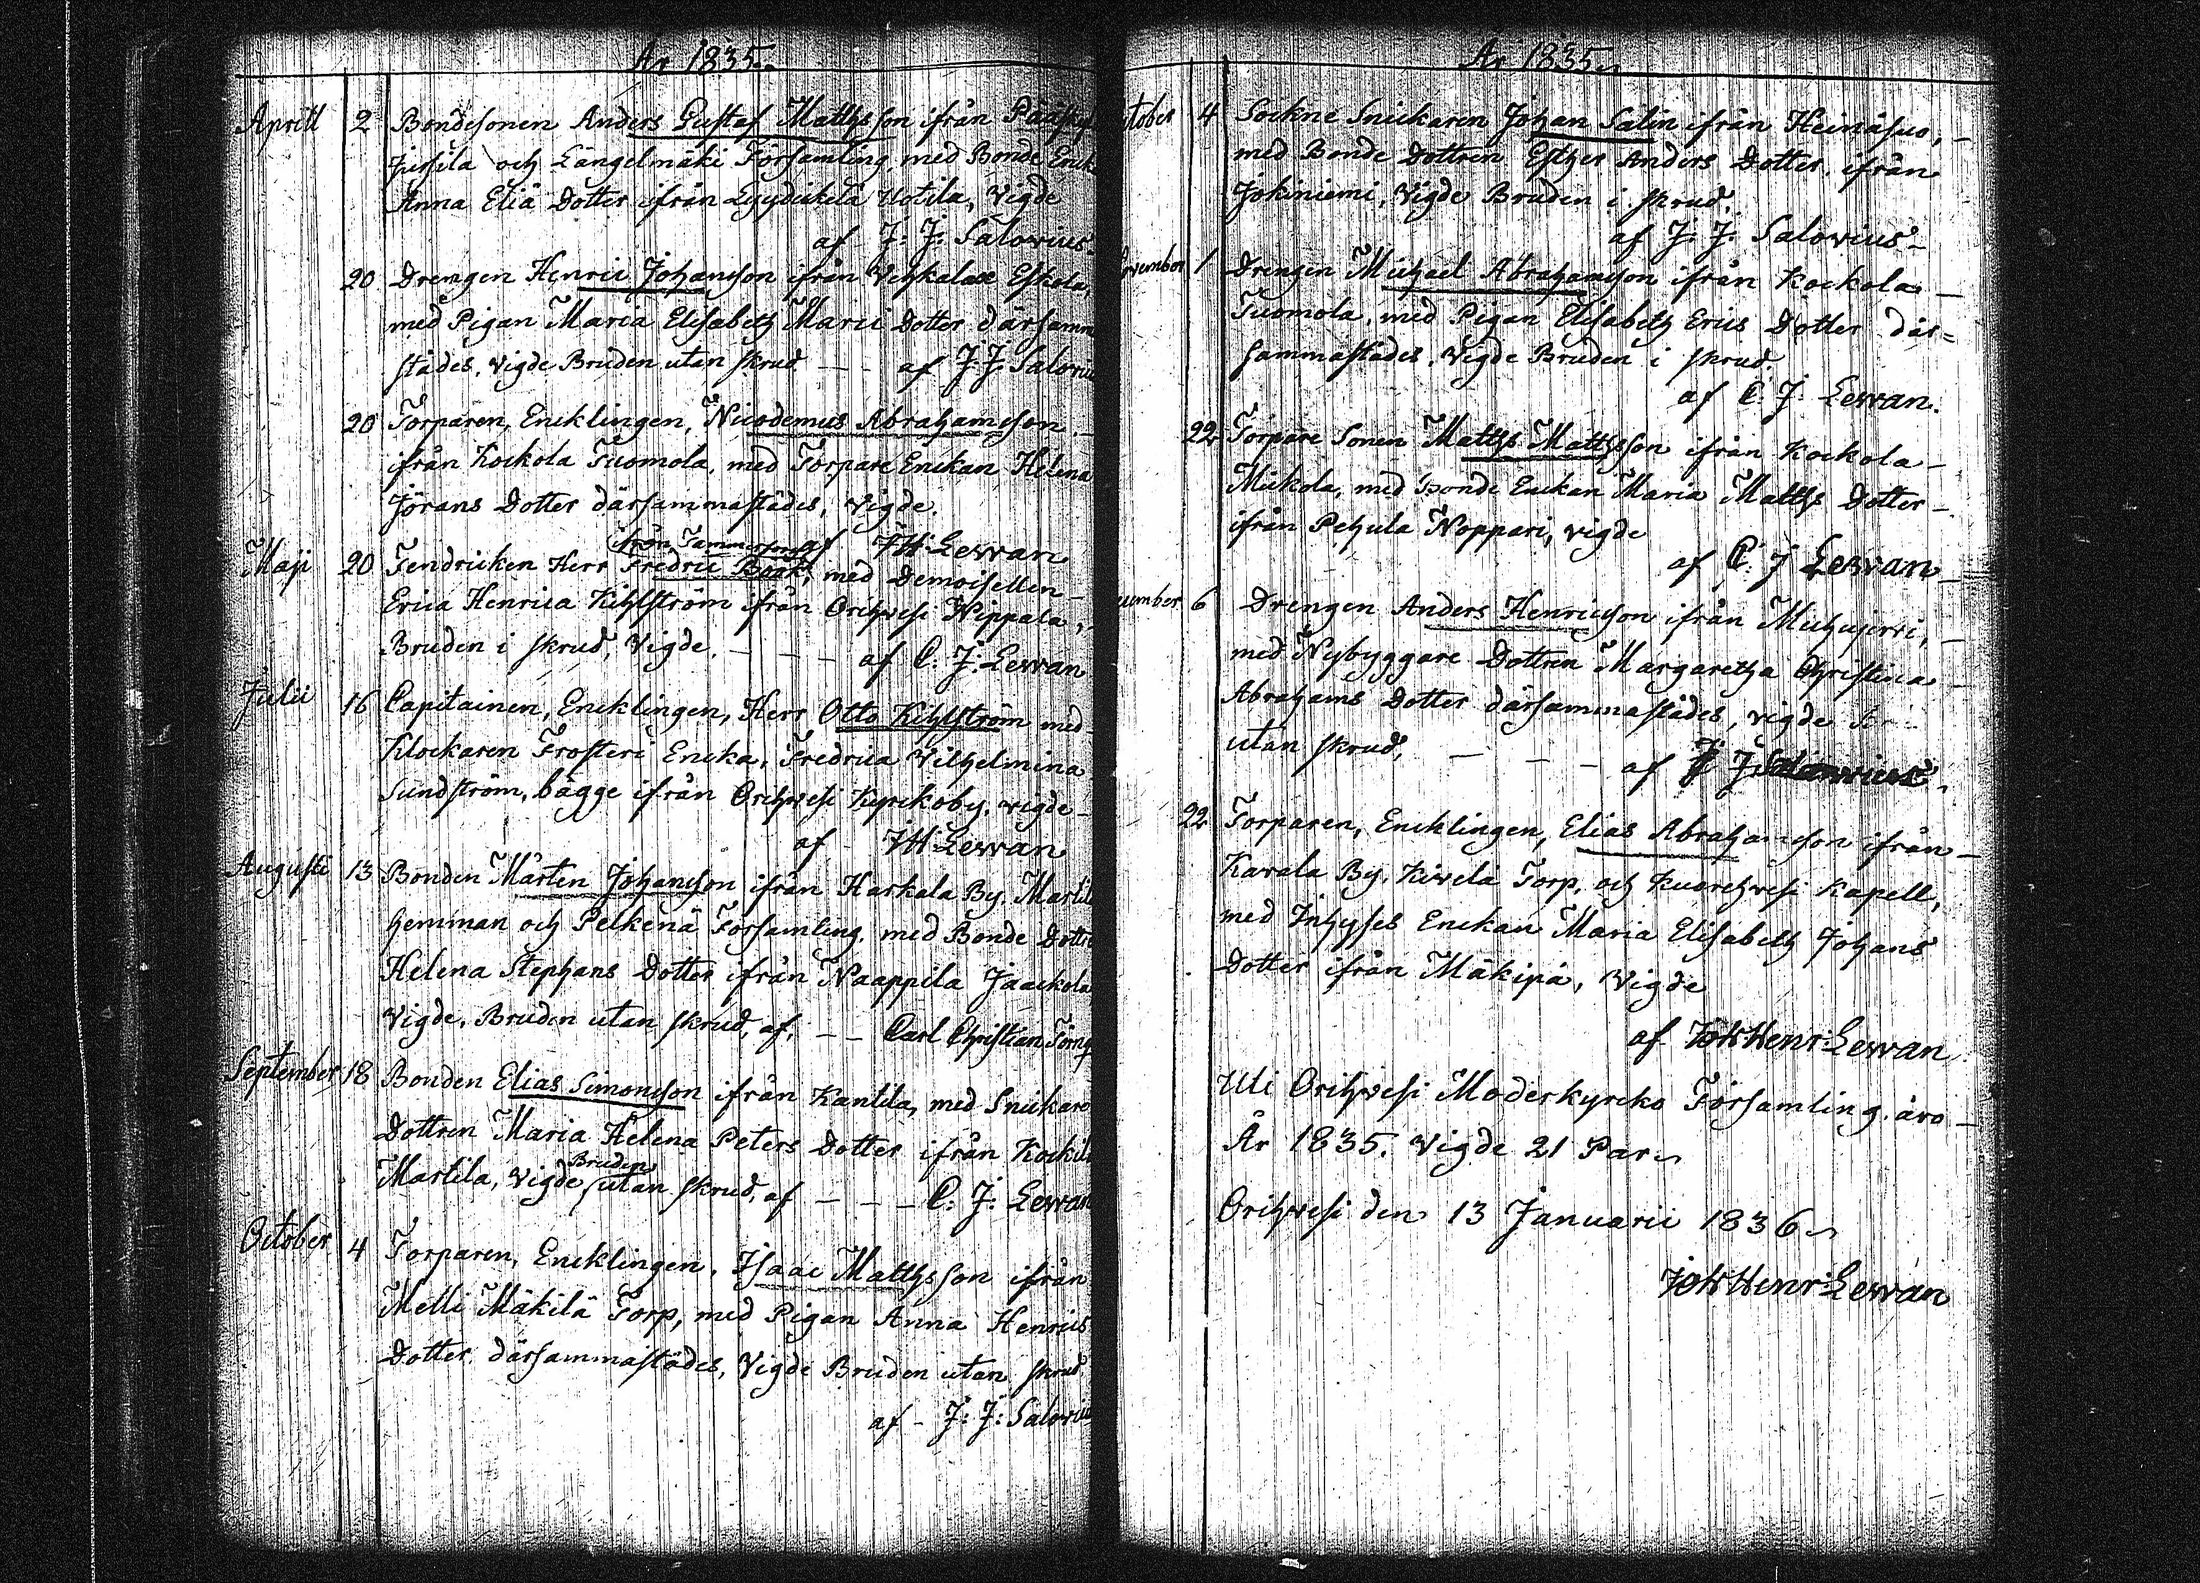 År 1835.
Aprill 2 Bondesonen Anders Gustaf Mattsson ifrån
Jussila och Längelmäki Församling, med Bonde Enck
Anna Eliä Dotter ifrån Lyydickelä Uotila, Vigde
af J: J: Salovius
20 Drengen Henric Johansson ifrån Vehkalax Eskola,
med Pigan Maria Elisabeth Mårt Dotter därsamm
städes, vigde Bruden utan skrud — — af J. J. Salovius
20 Torparen, Encklingen, Nicodemus Abrahamsson —
ifrån Kockola Tuomola, med Torpare Enckan Helena
Jörans Dotter därsammastädes, Vigde.
af JH Lewan
ifrån Tammerfors
Maji 20 Fendricken Herr Fredric Book, med Demoisellen —
Erica Henrica Kihlström ifrån Orihvesi Wippala,
Bruden i skrud, Vigde. — — — af C. J. Lewan
Julii 16 Capitainen, Encklingen, Herr Otto Kihlström med
Klockaren Frosteri Encka, Fredrica Vilhelmina
Sundström, bägge ifrån Orihvesi Kyrckoby, vigde
af JH Lewan
Augusti 13 Bonden Mårten Johansson ifrån Harkala By, Martil
hemman och Pelkenä Församling, med Bonde Dottr
Helena Stephans Dotter ifrån Naappila Jaackola
Vigde, Bruden utan skrud, af, — — Carl Christian Törnq
September 18 Bonden Elias Simonsson ifrån Kantila, med Snickare
Dottren Maria Helena Peters Dotter ifrån
Bruden
Martila, Vigde utan skrud, af — — — C. J: Lewan
October 4 Torparen, Encklingen, Isaac Mattsson ifrån
Melli Mäkilä Torp, med Pigan Anna Henrics
Dotter därsammastädes, Vigde Bruden utan skrud
af — J: J: Salovius
År 1835
tober 4 Sockne Snickaren Johan Salin ifrån Heinäsuo, —
med Bonde Dottren Esther Anders Dotter, ifrån
Jokiniemi, Vigde Bruden i skrud.
af J: J: Salovius —
ovember 1 Drengen Michael Abrahamsson ifrån Kockola —
Tuomola, med Pigan Elisabeth Erics Dotter där=
sammastädes, Vigde Bruden i skrud.
af C. J. Lewan.
22 Torpare Sonen Matts Mattsson ifrån Kockola —
Mickola, med Bonde Enckan Maria Matts Dotter —
ifrån Pehula Noppari, vigde
af C. J Lewan
ecember 6 Drengen Anders Henricsson ifrån —
med Nybyggare Dottren Margaretha Christina —
Abrahams Dotter därsammastädes, vigde
utan skrud, — — — af J J Salovius.
22 Torparen, Encklingen, Elias Abrahamsson ifrån —
Karala By, Kivelä Torp, och Kuorehvesi Kapell,
med Inhyses Enckan Maria Elisabeth Johans
Dotter ifrån Mäkipä, Vigde
af Joh Henr: Lewan
Uti Orihvesi Moderkyrcko Församling äro —
År 1835. Vigde 21 Par
Orihvesi den 13 Januarii 1836
Joh Henr: Lewan